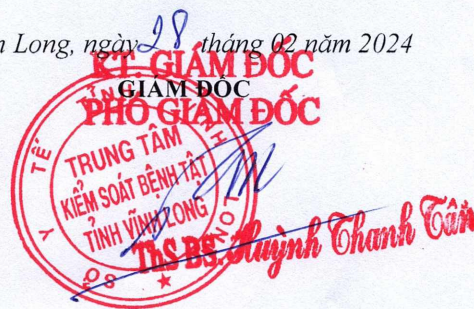 n Long, ngày 28 tháng 02 năm 2024
KT. GIÁM ĐỐC
GIÁM ĐỐC
PHÓ GIÁM ĐỐC
SỞ Y TẾ TỈNH VĨNH LONG
TRUNG TÂM
KIỂM SOÁT BỆNH TẬT
TỈNH VĨNH LONG
ThS BS. Huỳnh Thanh Tân